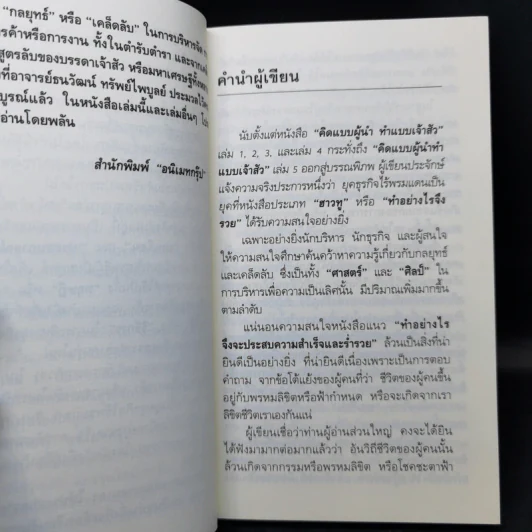 “กลยุทธ์” หรือ “เคล็ดลับ” ในการบริหารจัด
รค้าหรือการงาน ทั้งในตำรับตำรา และจาก
สูตรลับของบรรดาเจ้าสัว หรือมหาเศรษฐี
ที่อาจารย์ธนวัฒน์ ทรัพย์ไพบูลย์ ประมวลไว้
บูรณ์แล้ว ในหนังสือเล่มนี้และเล่มอื่นๆ
อ่านโดยพลัน
สำนักพิมพ์ “อนิเมทกรุ๊ป”
คำนำผู้เขียน
นับตั้งแต่หนังสือ “คิดแบบผู้นำ ทำแบบเจ้าสัว”
เล่ม 1, 2, 3, และเล่ม 4 กระทั่งถึง “คิดแบบผู้นำทำ
แบบเจ้าสัว” เล่ม 5 ออกสู่บรรณพิภพ ผู้เขียนประจักษ์
แจ้งความจริงประการหนึ่งว่า ยุคธุรกิจไร้พรมแดนเป็น
ยุคที่หนังสือประเภท “ฮาวทู” หรือ “ทำอย่างไรจึง
รวย” ได้รับความสนใจอย่างยิ่ง
เฉพาะอย่างยิ่งนักบริหาร นักธุรกิจ และผู้สนใจ
ให้ความสนใจศึกษาค้นคว้าหาความรู้เกี่ยวกับกลยุทธ์
และเคล็ดลับ ซึ่งเป็นทั้ง “ศาสตร์” และ “ศิลป์” ใน
การบริหารเพื่อความเป็นเลิศนั้น มีปริมาณเพิ่มมากขึ้น
ตามลำดับ
แน่นอนความสนใจหนังสือแนว “ทำอย่างไร
จึงจะประสบความสำเร็จและร่ำรวย” ล้วนเป็นสิ่งที่น่า
ยินดีเป็นอย่างยิ่ง ที่น่ายินดีเนื่องเพราะเป็นการตอบ
คำถาม จากข้อโต้แย้งของผู้คนที่ว่า ชีวิตของผู้คนขึ้น
อยู่กับพรหมลิขิตหรือฟ้ากำหนด หรือจะเกิดจากเรา
ลิขิตชีวิตเราเองกันแน่
ผู้เขียนเชื่อว่าท่านผู้อ่านส่วนใหญ่ คงจะได้ยิน
ได้ฟังมามากต่อมากแล้วว่า อันวิถีชีวิตของผู้คนนั้น
ล้วนเกิดจากกรรมหรือพรหมลิขิต หรือโชคชะตาฟ้า